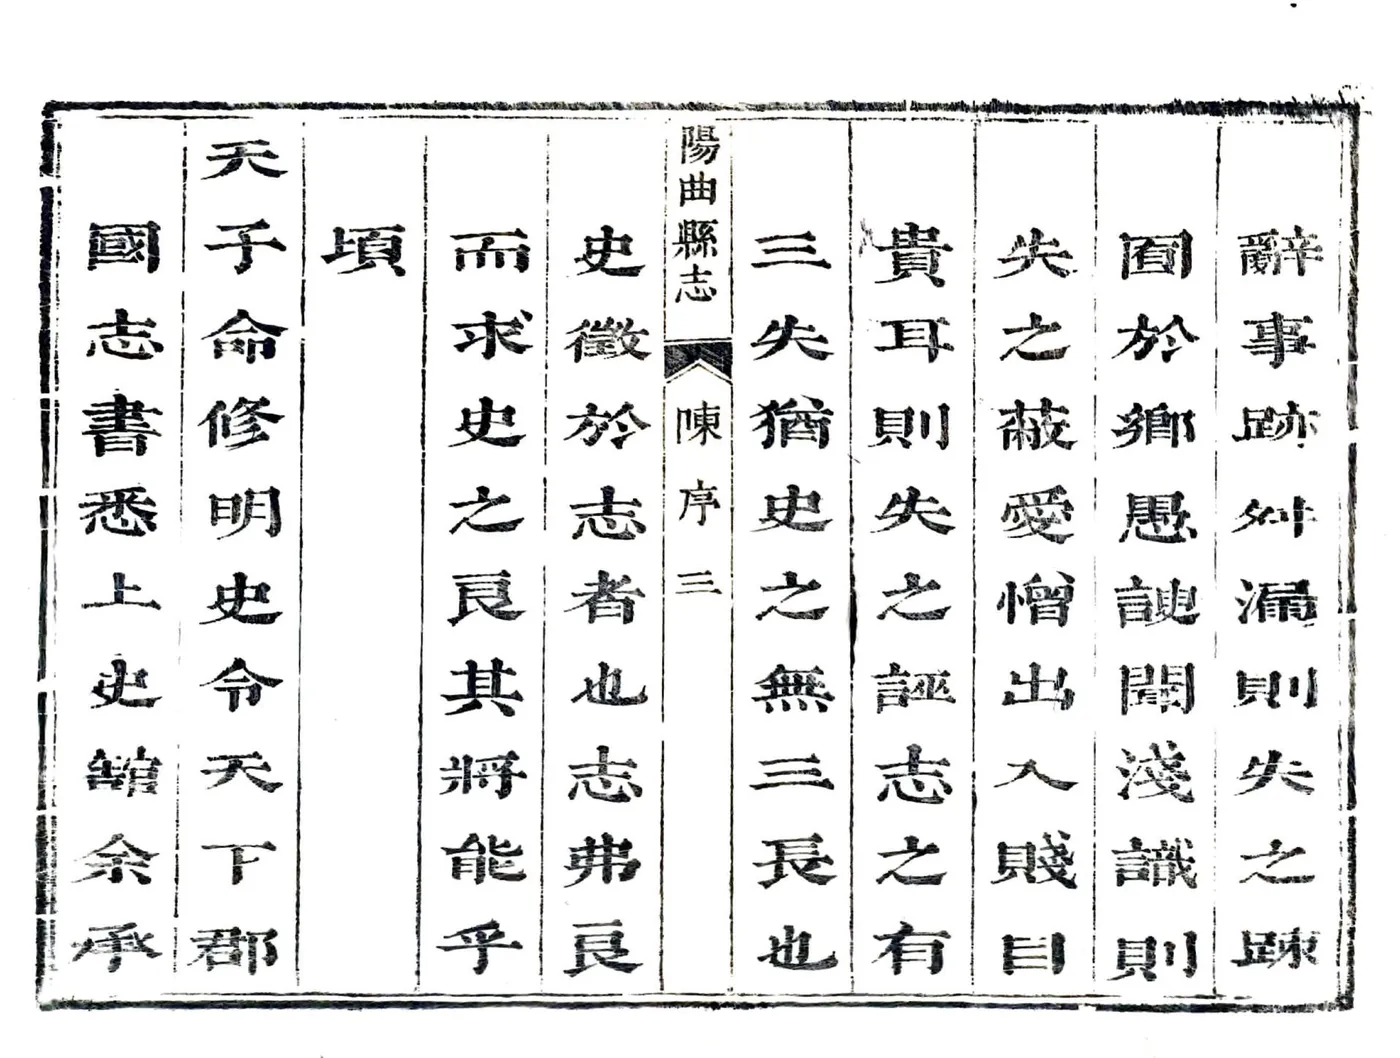 辭事跡舛漏則失之踈
囿於鄉愚諛聞淺識則
失之蔽愛憎出入賤目
貴耳則失之誣志之有
三失猶史之無三長也
陽曲縣志
陳序
三
史徵於志者也志弗良
而求史之良其將能乎
頃
天子命修明史令天下郡
國志書悉上史館余承